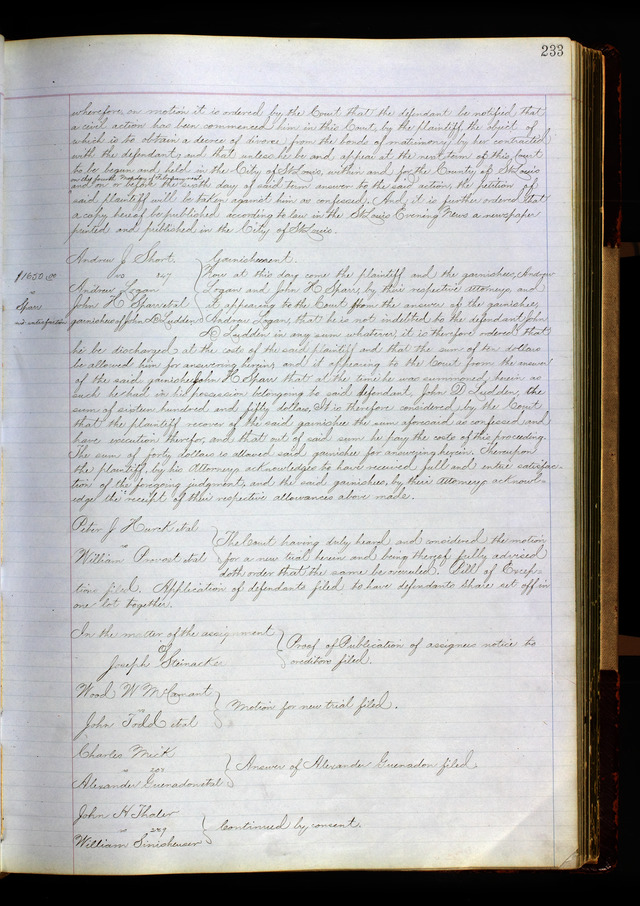 233
wherefore on motion it is ordered by the Court that the defendant be notified that
a civil action has been commenced him in this Court, by the plaintiff, the object of
which is to obtain a decree of divorce from the bonds of matrimony by her contracted
with the defendant, and that unless he be and appear at the next term of this Court
to be begun and held in the City of St Louis, within and for the County of St Louis
on the fourth Monday of next
and on or before the sixth day of said term answer to the said action, the petition of
said plaintiff will be taken against him as confessed. And it is further ordered that
a copy hereof be published according to law in the St Louis Evening News a newspaper
printed and published in the City of St Louis.
Andrew J Short Garnishment.
vs 147 Now at this day come the plaintiff and the garnishees, Andrew
$1650.00 Andrew Logan Logan and John H Sparr, by their respective Attorneys, and
vs John H Sparr et al it appearing to the Court from the answer of the garnishee,
Sparr garnishees of John D Ludden Andrew Logan, that he is not indebted to the defendant John
and satisfaction D Ludden in any sum whatever, it is therefore ordered that
he be discharged at the costs of the said plaintiff and that the sum of ten dollars
be allowed him for answering herein, and it appearing to the Court from the answer
of the said garnishee John H Sparr that at the time he was summoned herein as
such he had in his possession belonging to said defendant, John D Ludden, the
sum of sixteen hundred and fifty dollars, It is therefore considered by the Court
that the plaintiff recover of the said garnishee the sum aforesaid as confessed and
have execution therefor, and that out of said sum he pay the costs of this proceeding.
The sum of forty dollars is allowed said garnishee for answering herein. Thereupon
the plaintiff, by his Attorney acknowledges to have received full and entire satisfac-
tion of the foregoing judgment, and the said garnishees, by their Attorneys, acknowl-
edge the receipt of their respective allowances above made.
Peter J Hurck et al
vs The Court having duly heard and considered the motion
William Provost et al for a new trial herein and being thereof fully advised
doth order that the same be overruled. Bill of Excep-
tions filed. Application of defendants filed to have defendants share set off in
one lot together.
In the matter of the assignment
of Proof of Publication of assignees notice to
Joseph Steinacke creditors filed.
Wood W McCamant
vs Motion for new trial filed.
John Todd et al
Charles Meik
vs Answer of Alexander Guenadon filed.
Alexander Guenadon et al
John H Thaler
vs Continued by consent.
William Sinisheuser